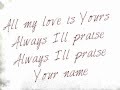 All my love is Yours
Always Ill praise
Always Ill praise
Your name